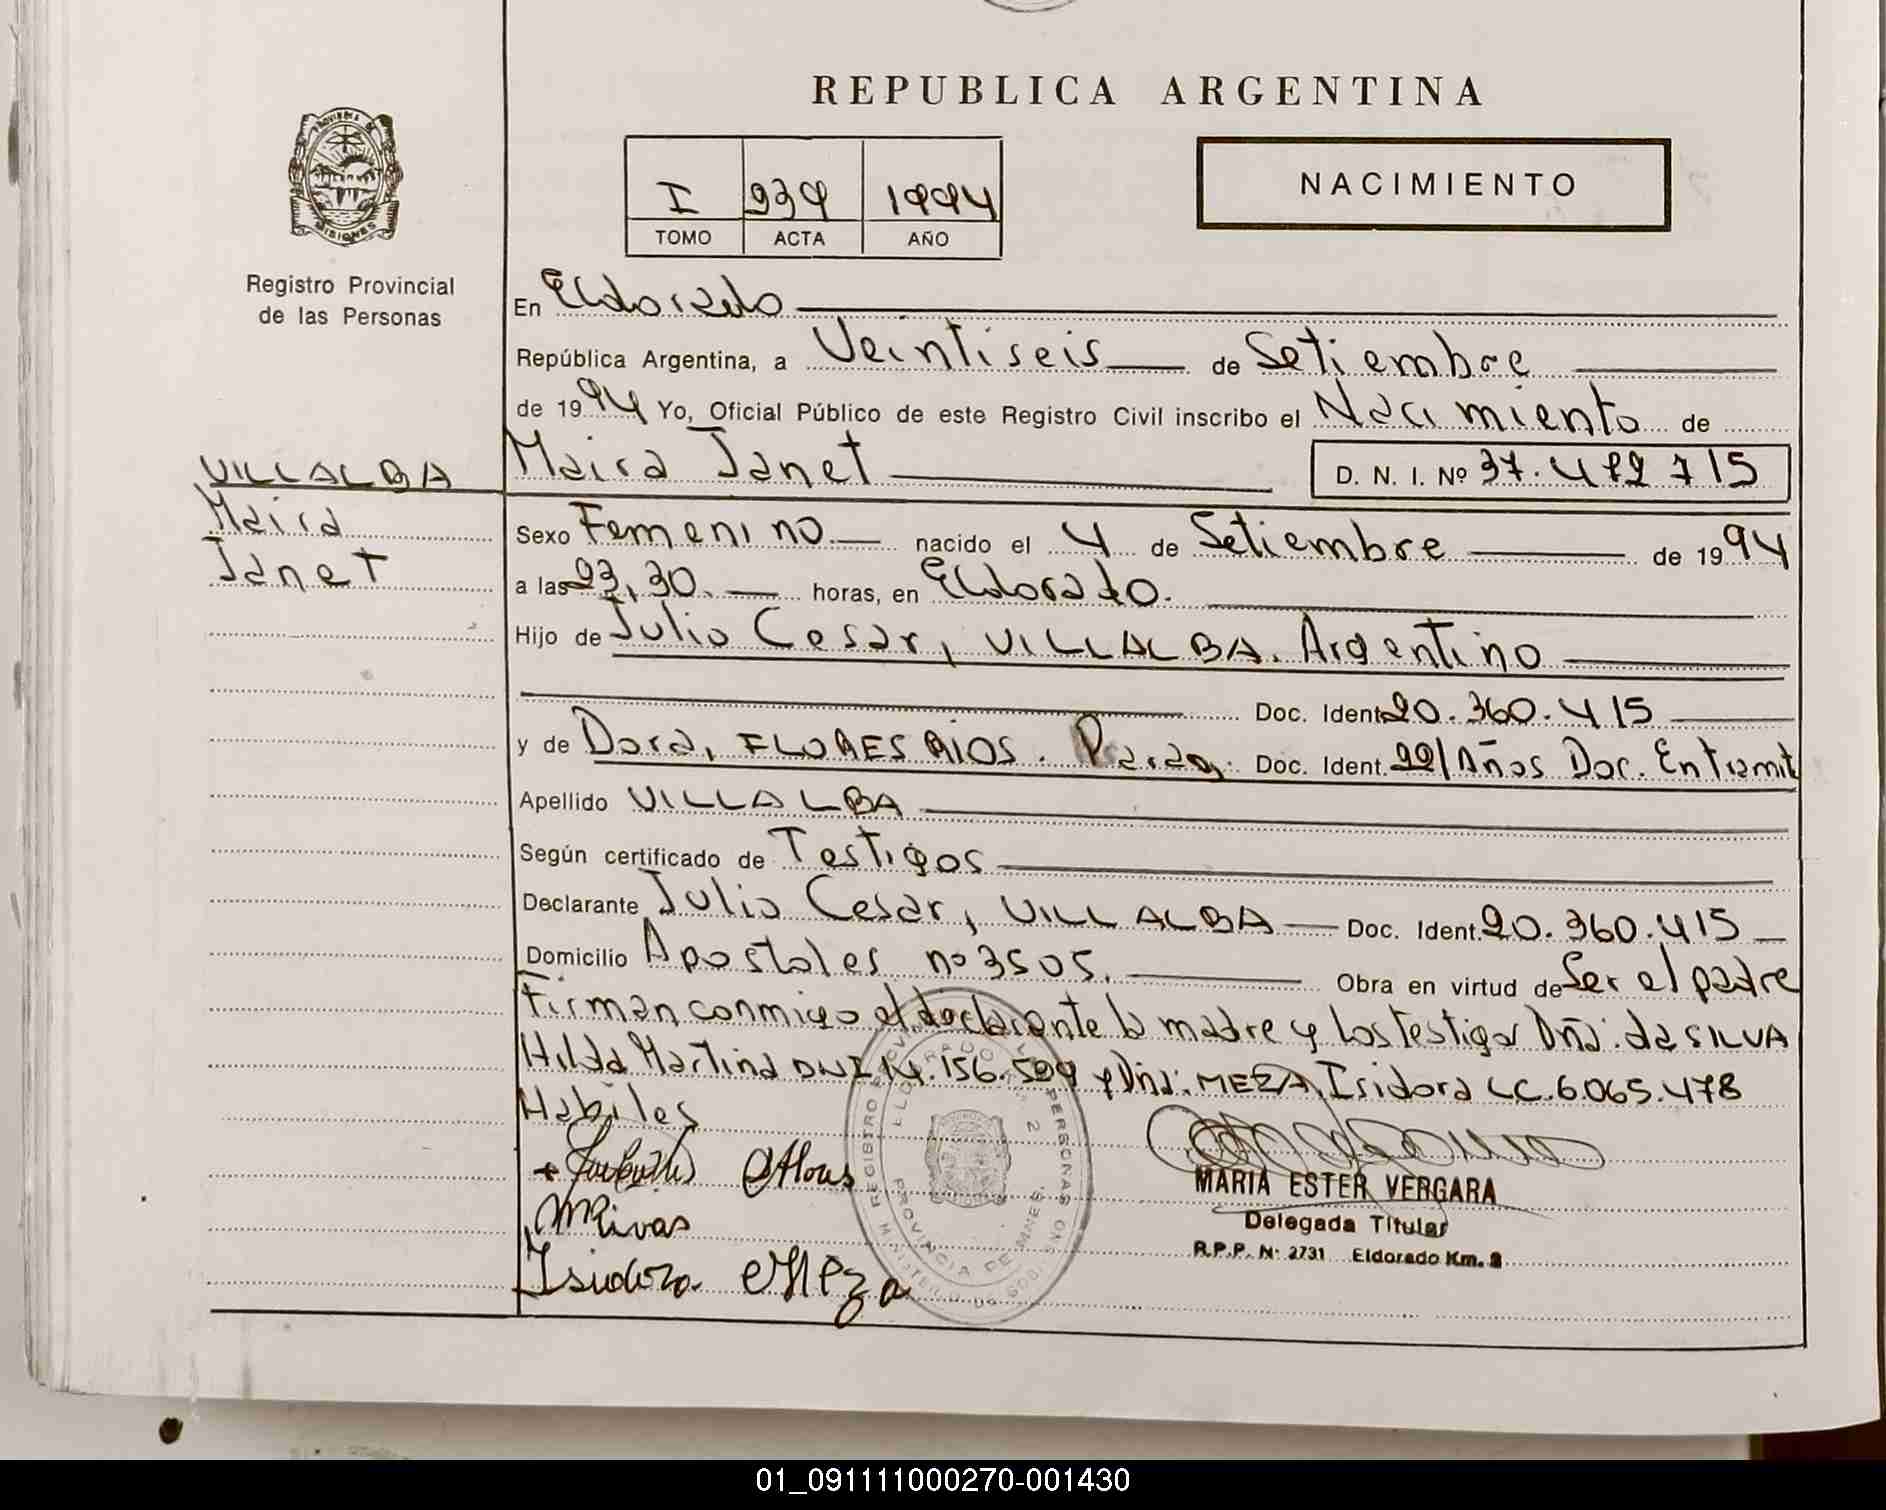 REPUBLICA ARGENTINA
PROVINCIA DE
MISIONES
Registro Provincial
de las Personas
I 939 1994
TOMO ACTA AÑO
NACIMIENTO
En Eldorado
República Argentina, a Veintiseis de Setiembre
de 1994 Yo, Oficial Público de este Registro Civil inscribo el Nacimiento de
VILLALBA
Maira
Janet
Maira Janet D. N. I. Nº 37.482715
Sexo Femenino nacido el 4 de Setiembre de 1994
a las 23,30. horas, en Eldorado.
Hijo de Julio Cesar, VILLALBA. Argentino
Doc. Ident. 20.360.415
y de Dora, FLORES RIOS. Parag. Doc. Ident. 22/Años Doc. En Tramit
Apellido VILLALBA
Según certificado de Testigos
Declarante Julio Cesar, VILLALBA Doc. Ident. 20.360.415
Domicilio Apostoles nº 3505. Obra en virtud de Ser el padre
Firman conmigo el declarante la madre y los Testigos Dña: da SILVA
Hilda Martina DNI 14.156.509 y Dña: MEZA, Isidora LC.6.065.478
Habiles
MRivas
Isidora Meza
REGISTRO PROVINCIAL DE LAS PERSONAS
ELDORADO
PROVINCIA DE MNES.
MINISTERIO DE GOBIERNO
MARIA ESTER VERGARA
Delegada Titular
R.P.P. Nº 2731 Eldorado Km. 2
01_091111000270-001430